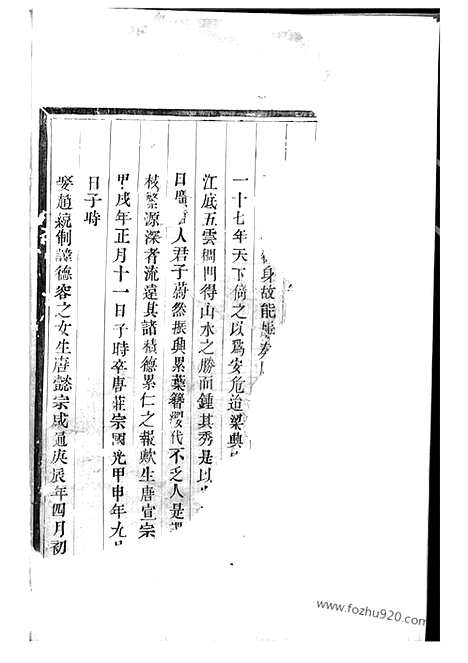 身故能
一十七年天下倚之以爲安危迨梁典
江底五雲橋門得山水之勝而鍾其秀是以
日廣 人君子蔚然振興累葉簪纓代不乏人是謂
枝繁源深者流遠其諸積德累仁之報歟生唐宣宗
甲戍年正月十一日子時卒唐莊宗同光甲申年九
日子時
娶趙統制諱德容之女生唐懿宗咸通庚辰年四月初
www.fozhu920.com